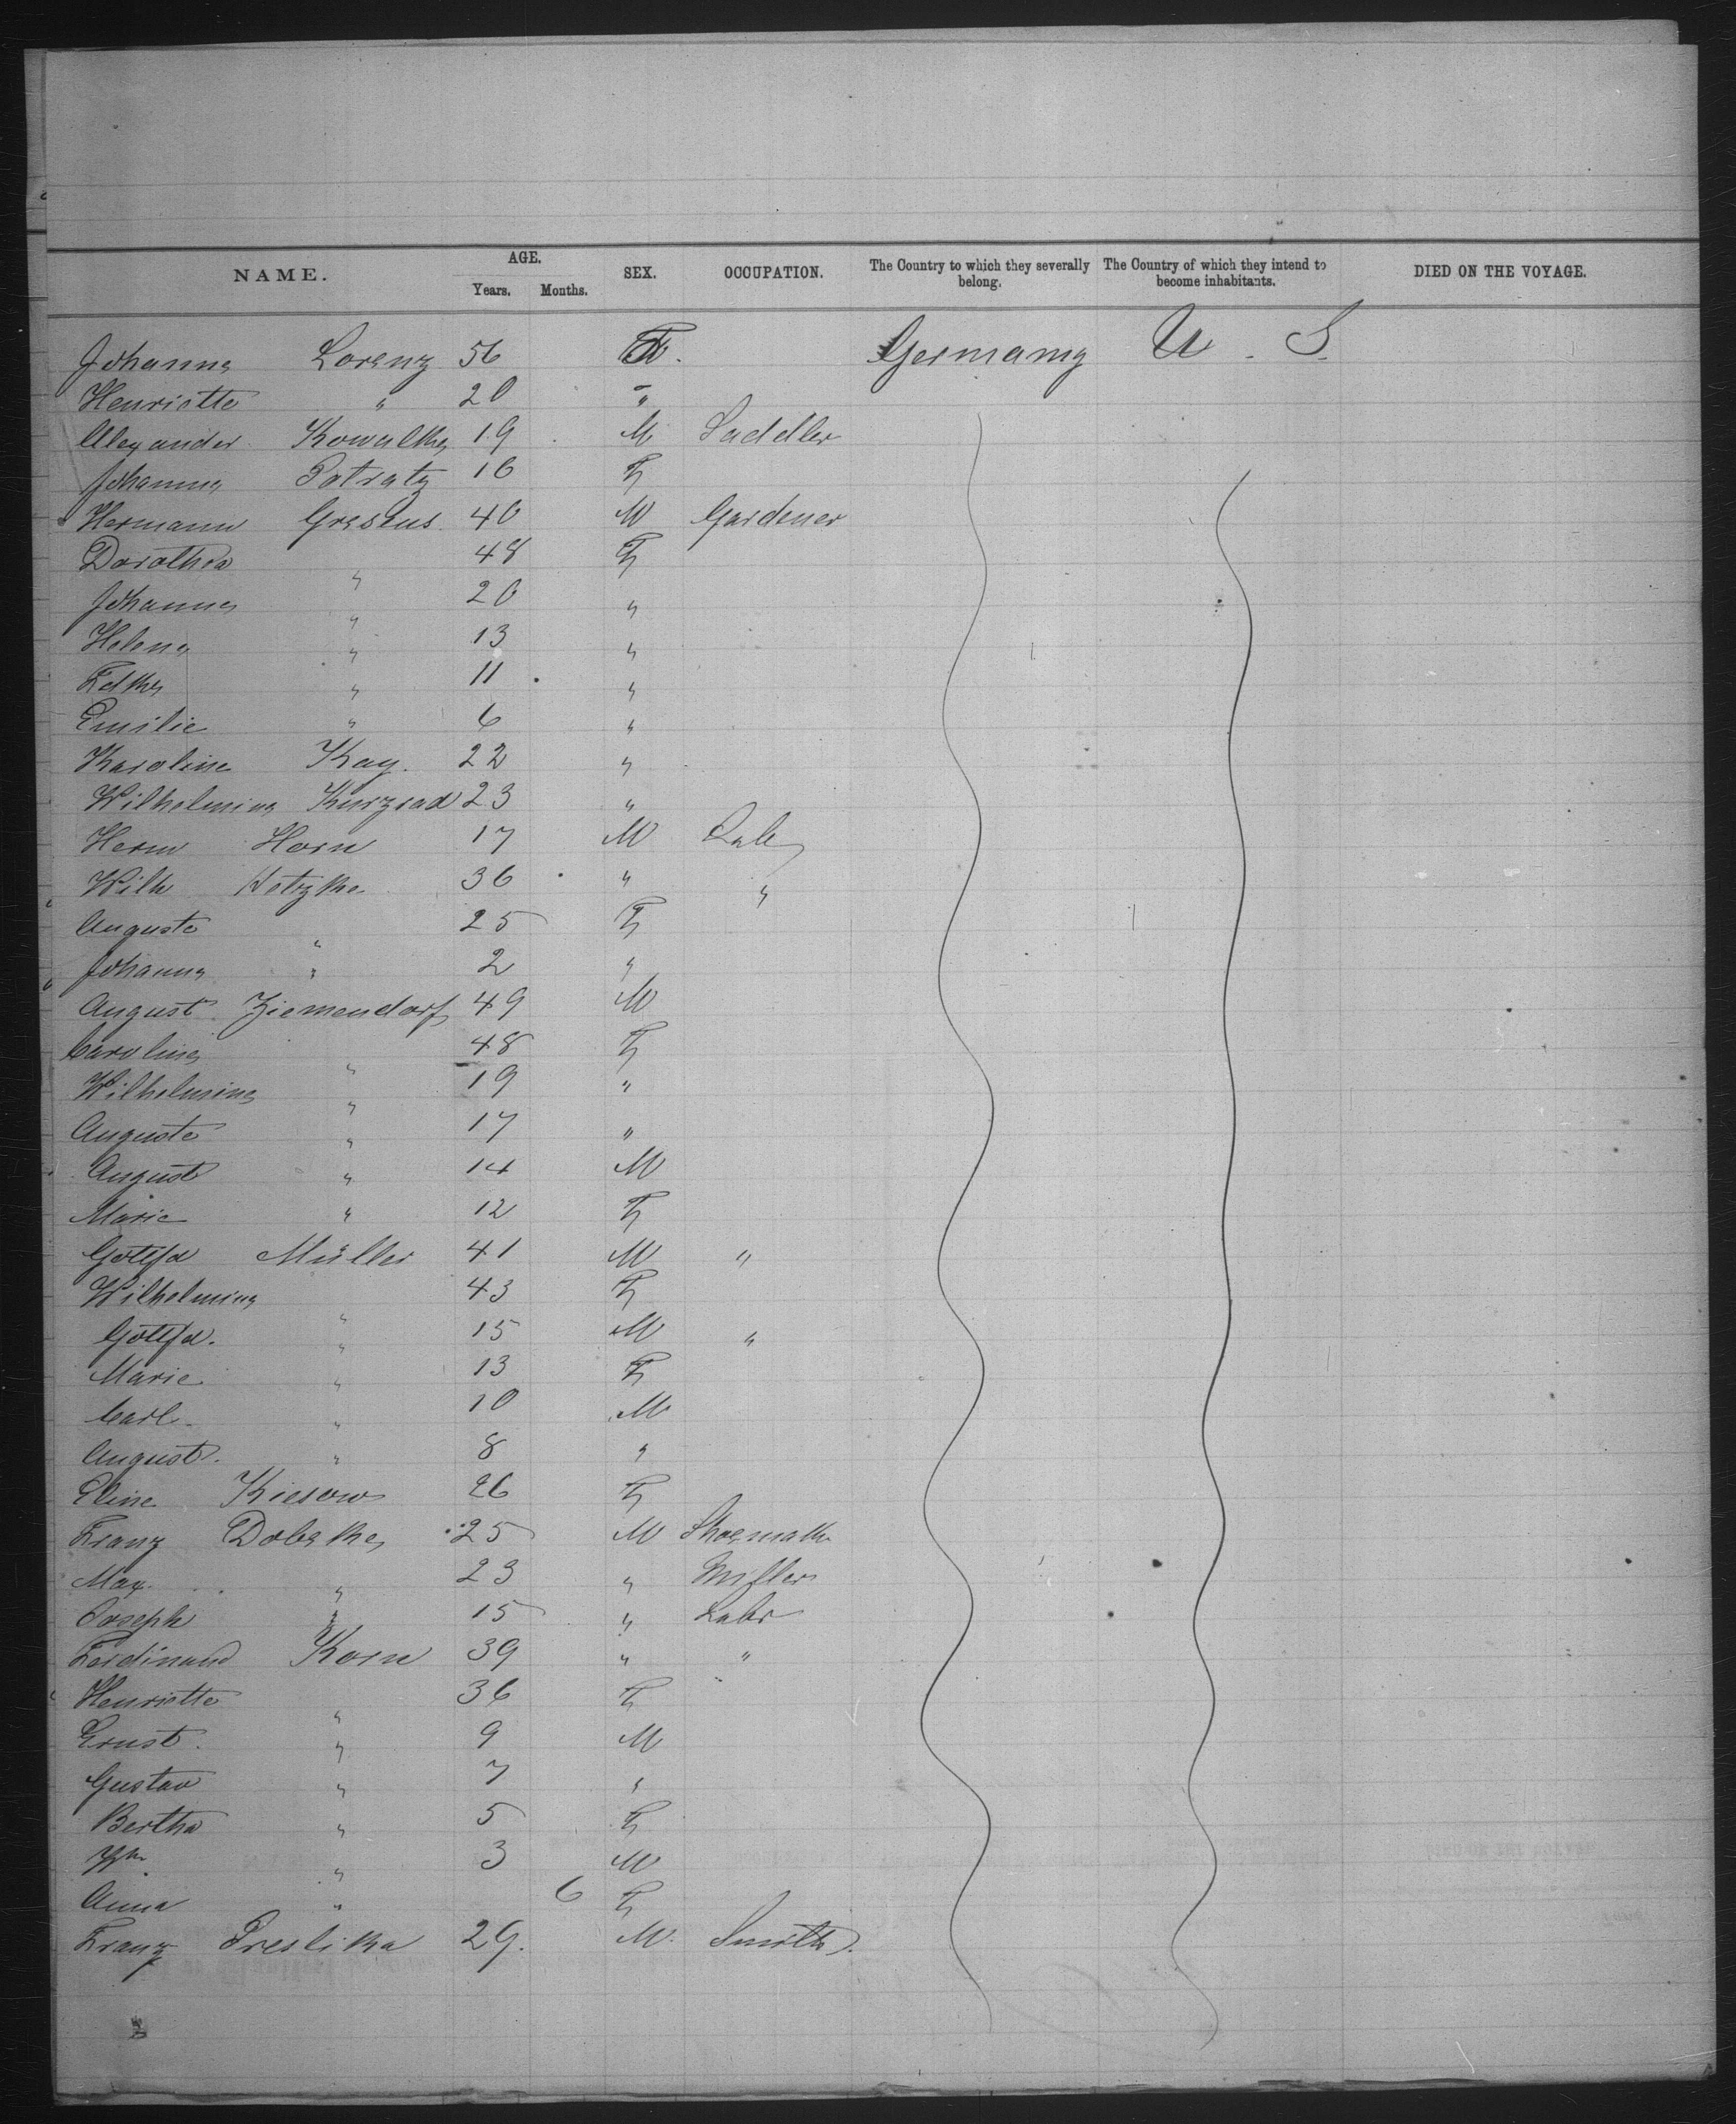 NAME. AGE. Years. Months. SEX. OCCUPATION. The Country to which they severally belong. The Country of which they intend to become inhabitants. DIED ON THE VOYAGE.
Johanna Lorenz 56 F. Germany U. S.
Henriette " 20 "
Alexander Kowalke 19 M Saddler
Johanna Potratz 16 F
Hermann 40 M Gardener
Dorothea " 48 F
Johanna " 20 "
Helena " 13 "
" 11 "
Emilie " 6 "
Karoline Kay. 22 "
Wilhelmina Kurzrad 23 "
Herm Horn 17 M Labr
Wilh 36 " "
Auguste " 25 F
Johanna " 2 "
August Ziemendorf 49 M
Carolina " 48 F
Wilhelmina " 19 "
Auguste " 17 "
August " 14 M
Marie " 12 F
Gottfd Müller 41 M "
Wilhelmina " 43 F
Gottfd. " 15 M "
Marie " 13 F
Carl " 10 M
August. " 8 "
Eline Kiesow 26 F
Franz Dobeke 25 M Shoemak
Max " 23 " Miller
Joseph " 15 " Labr
Ferdinand Korn 39 " "
Henriette " 36 F
Ernst. " 9 M
Gustav " 7 "
Bertha " 5 F
Wm " 3 M
Anna " 6 F
Franz Preslika 29. M. Smith.